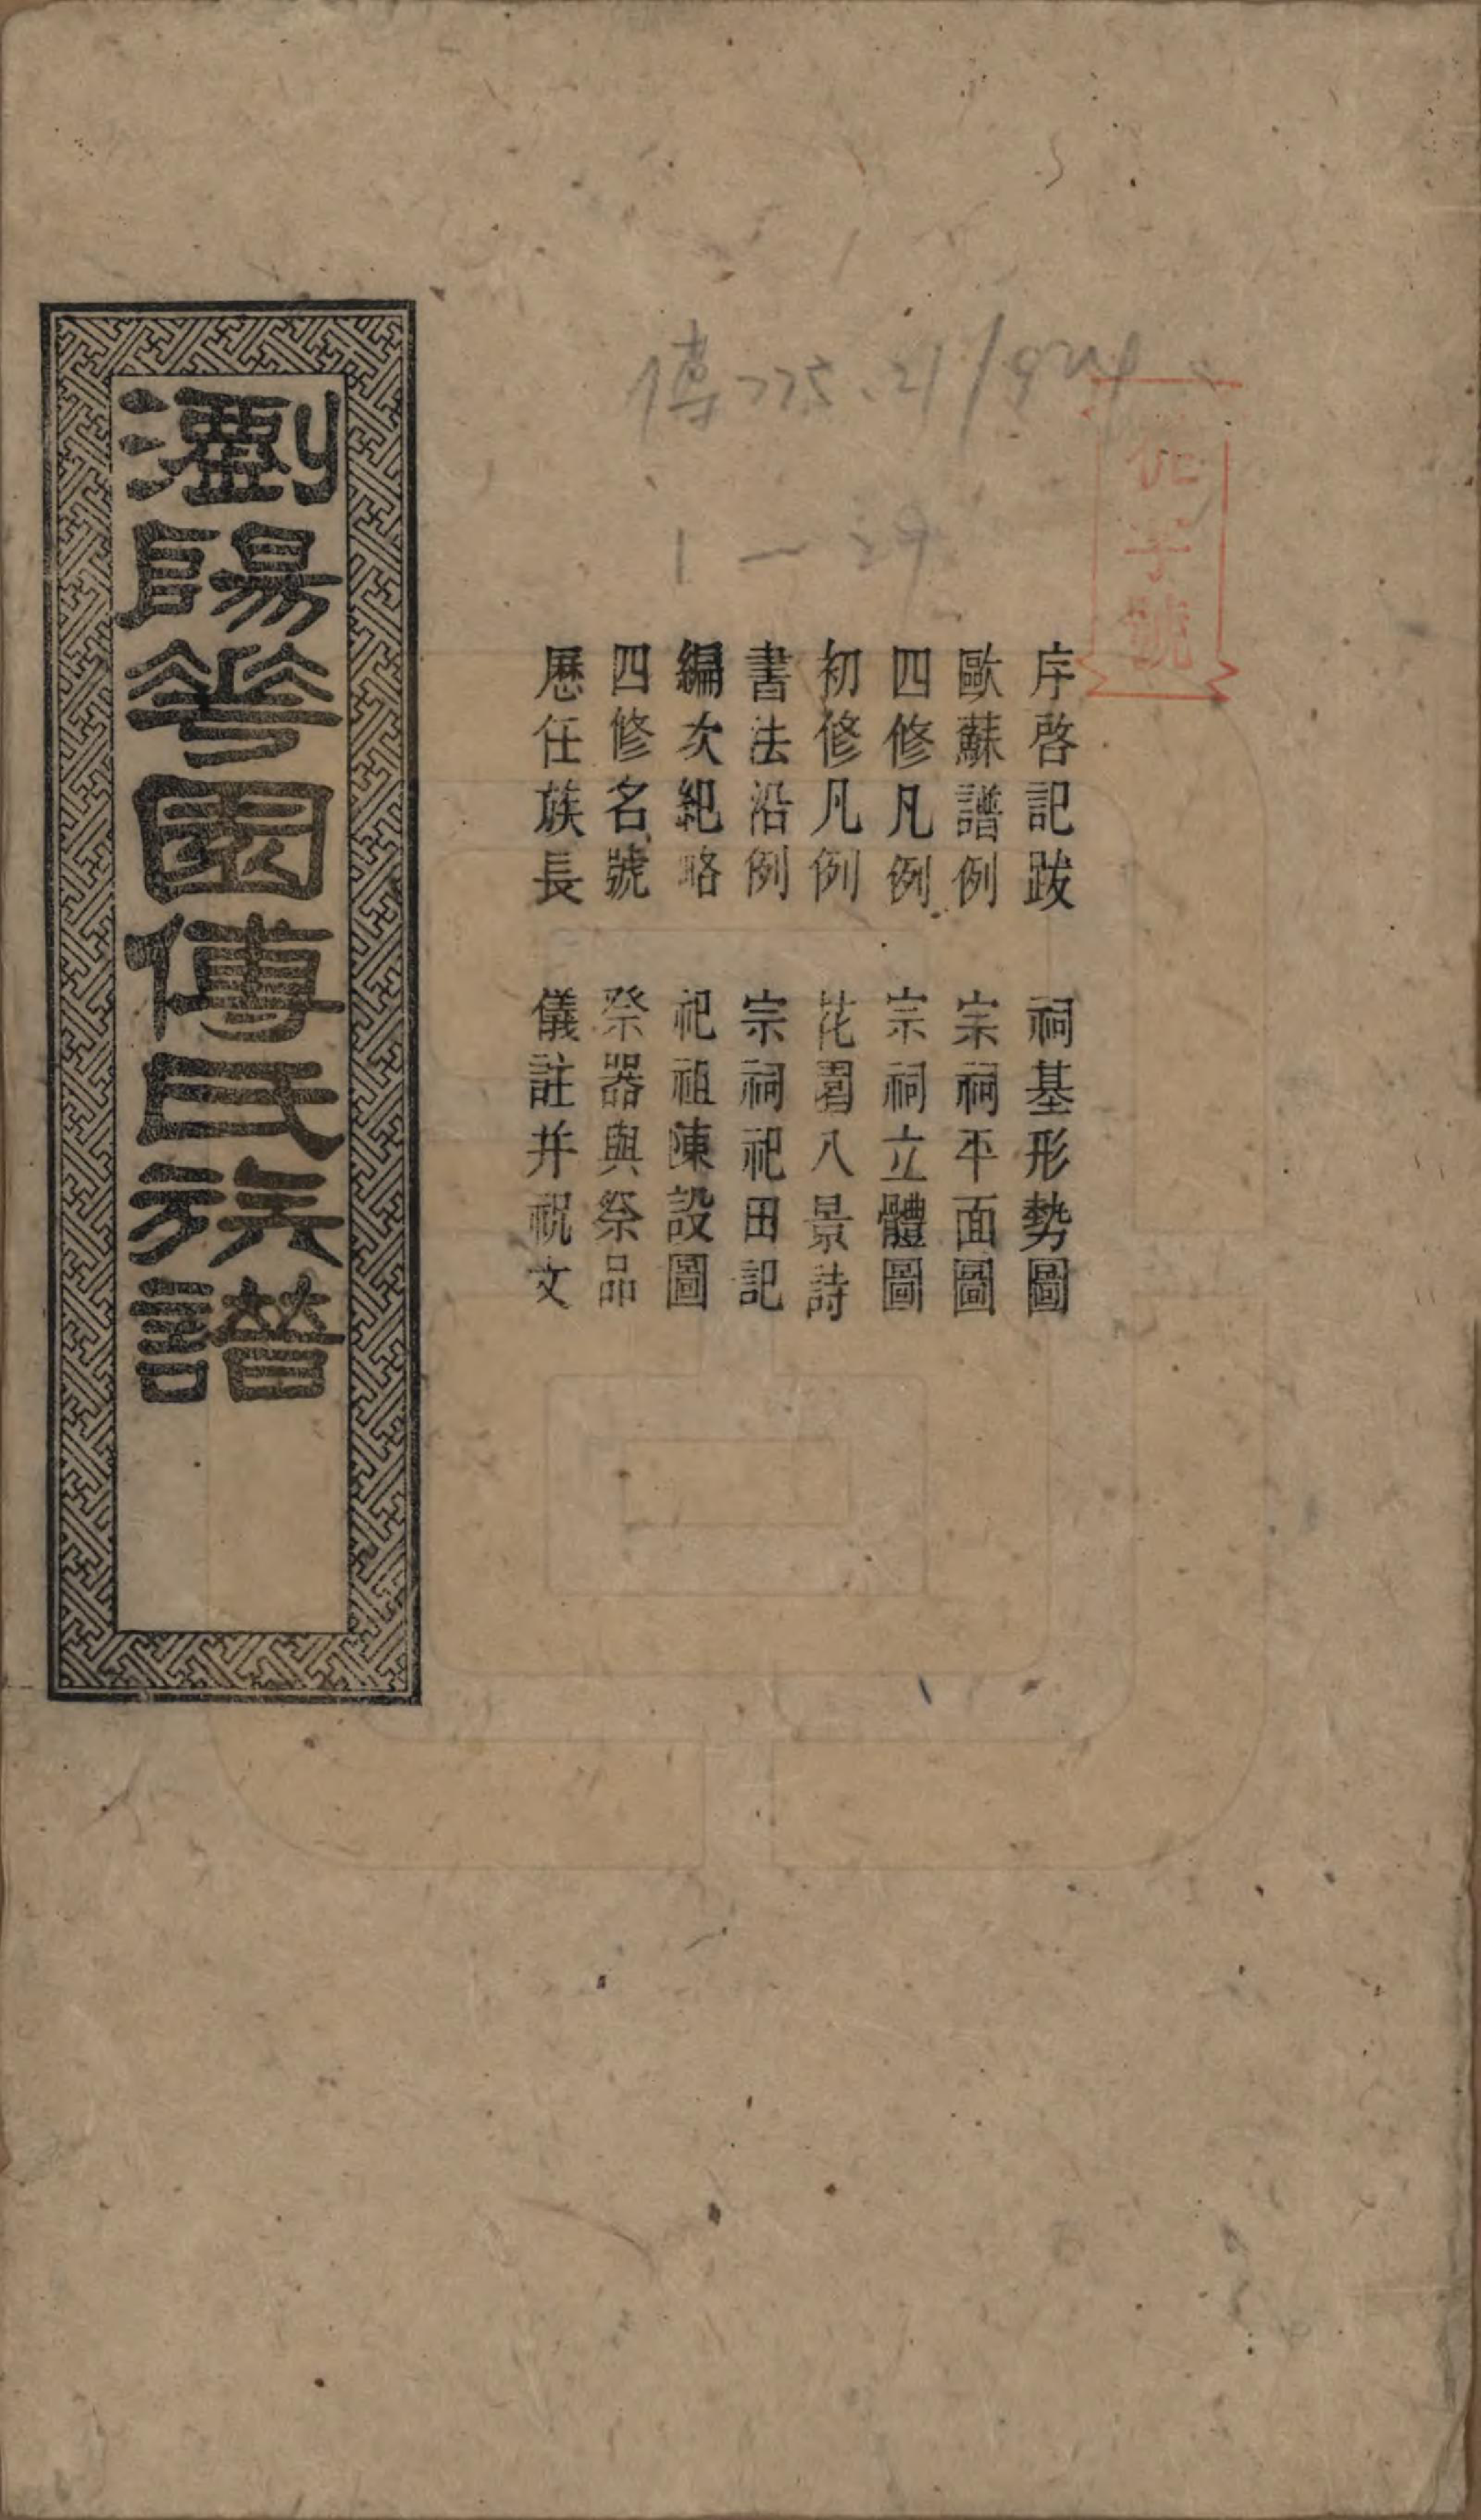 傅275.21/924
1—29
序啓記跋 祠基形勢圖
歐蘇譜例 宗祠平面圖
四修凡例 宗祠立體圖
初修凡例 花園八景詩
書法沿例 宗祠祀田記
編次紀略 祀祖陳設圖
四修名號 祭器與祭品
歷任族長 儀註并祝文
瀏陽華園傅氏族譜